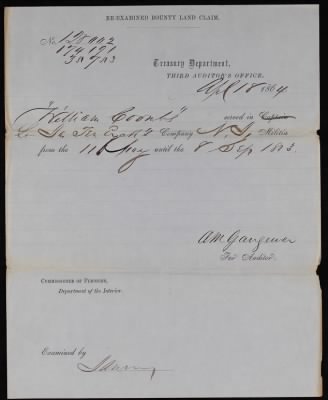 RE-EXAMINED BOUNTY LAND CLAIM.
No. 128 002
174 191
Treasury Department,
THIRD AUDITOR'S OFFICE,
Apl 18 1864.
"William Coombs" served in Captain
Ten Eyck's Company N. Y. Militia
from the 11 until the 8 Sep 1813.
A M Gangewer
For Auditor.
COMMISSIONER OF PENSIONS,
Department of the Interior.
Examined by